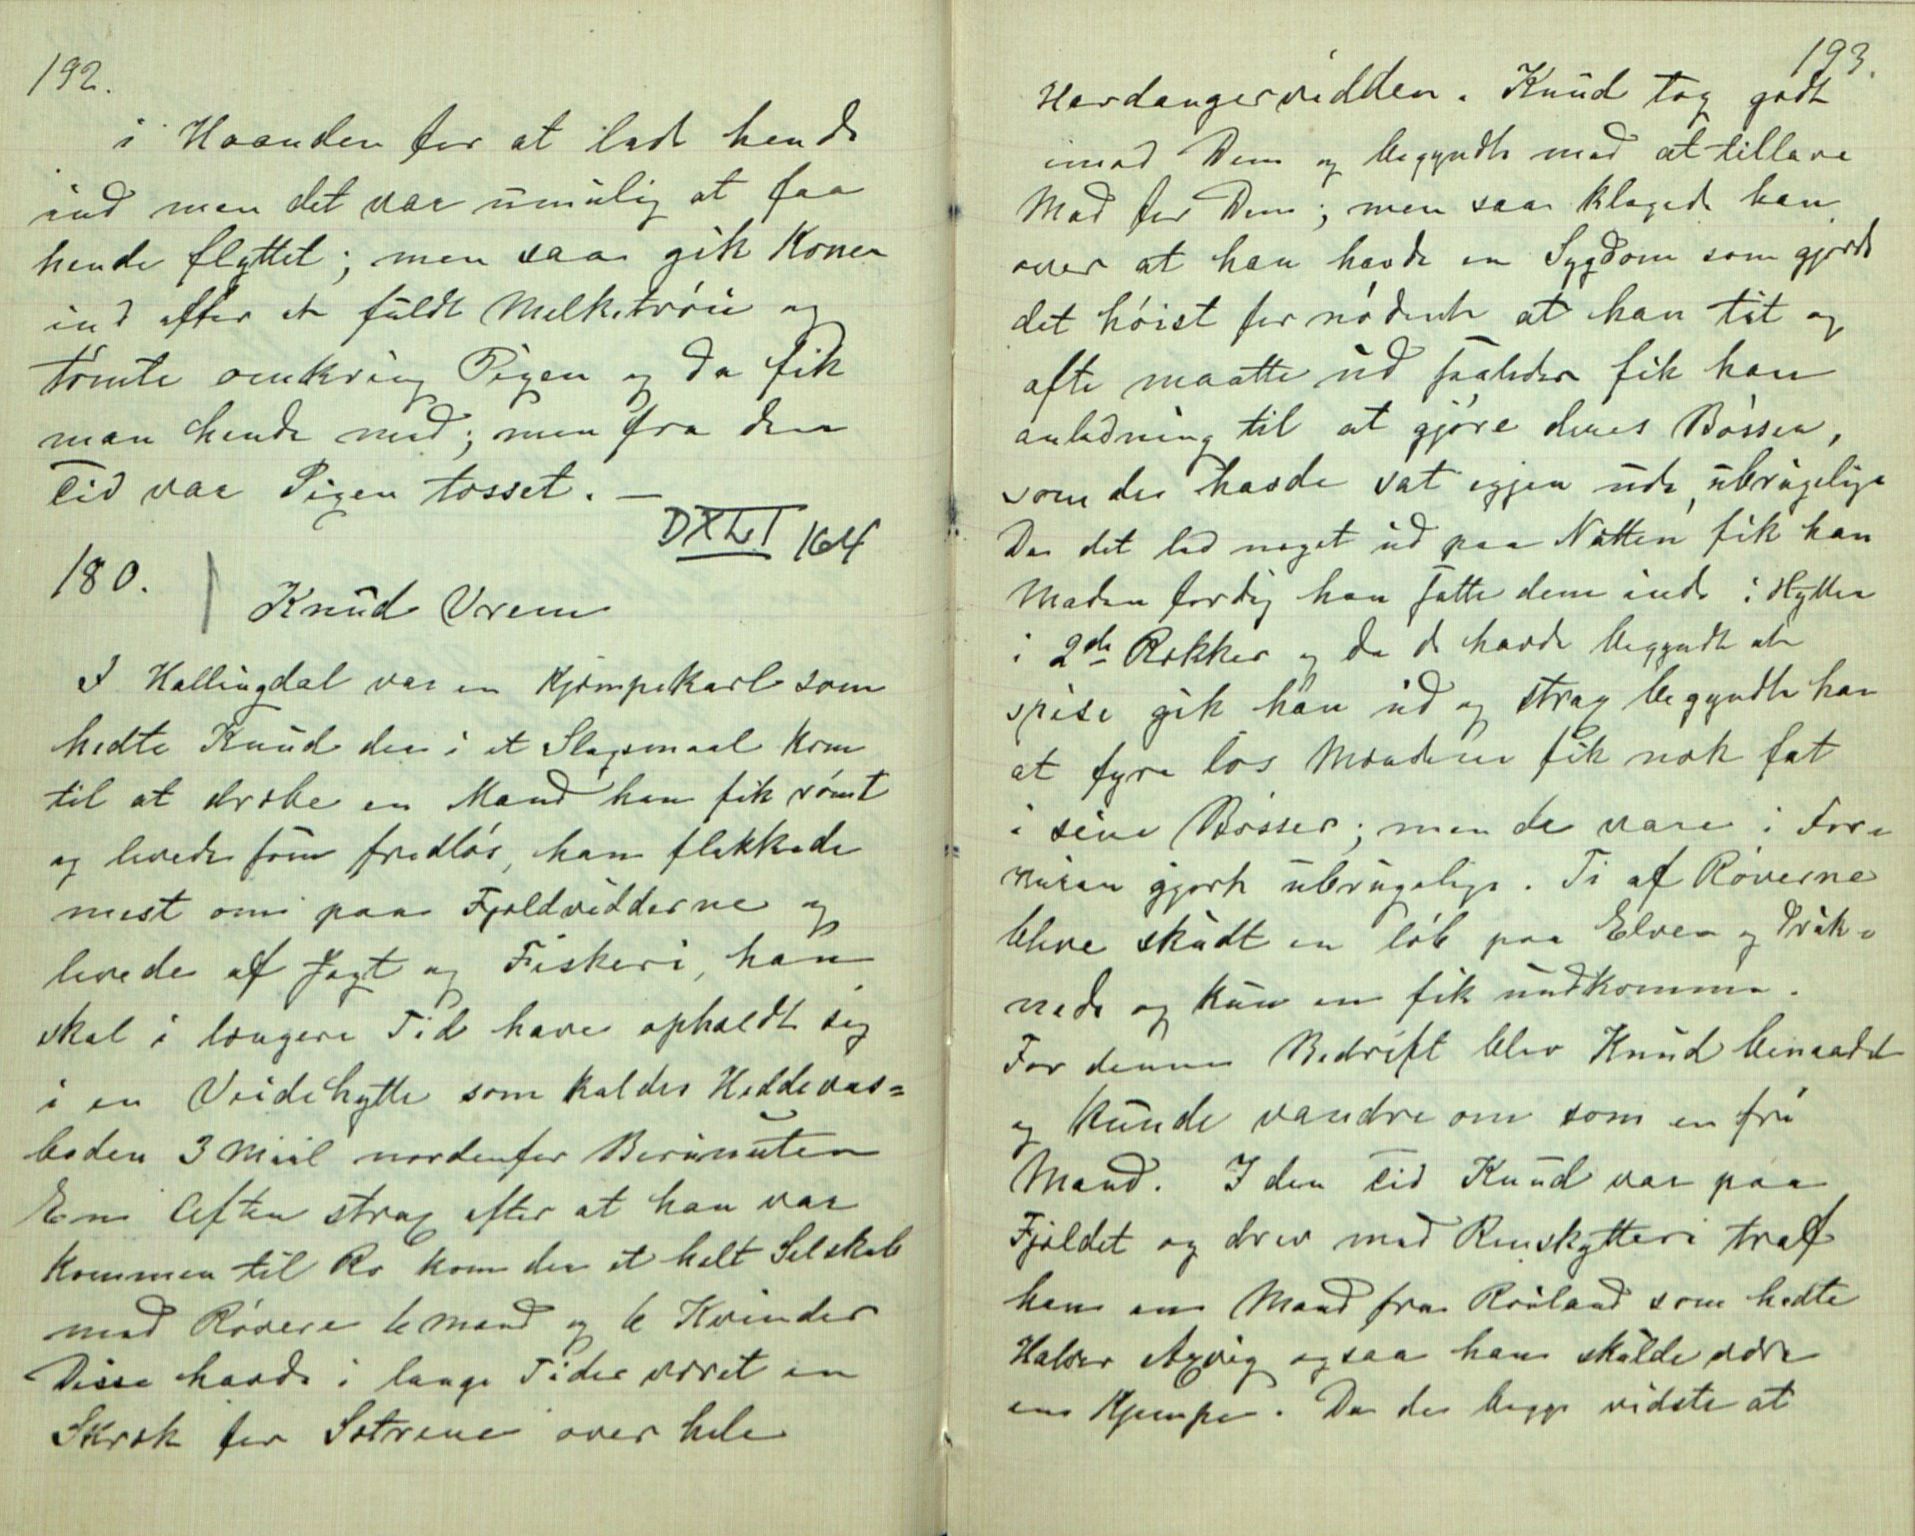 192.
i Haanden for at lede hende
ind men det var umulig at faa
hende flyttet; men saa gik Konen
ind efter et fuldt Melketrøie og
tømte omkring Pigen og da fik
man hende med; men fra den
Tid var Pigen tosset. —
DXLI 164
180.
Knud Vrem
I Hallingdal var en Kjæmpekarl som
hedte Knud der i et Slagsmaal kom
til at dræbe en Mand han fik rømt
og levede som fredløs, han flakkede
mest om paa Fjeldvidderne og
levede af Jagt og Fiskeri, han
skal i længere Tid have opholdt sig
i en Veidehytte som kaldes Heddevas=
boden 3 Miil nordenfor Berunuten
En Aften strax efter at han var
kommen til Ro kom der et helt Selskab
med Røvere 6 mand og 6 Kvinder
Disse havde i lange Tider været en
Skræk for Sætrene over hele
193.
Hardangervidden. Knud tog godt
imod Dem og begyndte med at tillave
Mad for Dem; men saa klagede han
over at han havde en Sygdom som gjorde
det høist fornødent at han tit og
ofte maatte ud saaledes fik han
anledning til at gjøre deres Bøsser,
som de havde sat igjen ude, ubrugelige
Da det led noget ud paa Natten fik han
Maden færdig han satte dem inde i Hytten
i 2de Rækker og da de havde begyndt at
spise gik han ud og strax begyndte han
at fyre løs Mændene fik nok fat
i sine Bøsser; men de vare i For=
veien gjort ubrugelige. Ti af Røverne
bleve skudt en løb paa Elven og druk=
nede og kun en fik undkomme.
For denne Bedrift blev Knud benaadet
og kunde vandre om som en fri
Mand. I den Tid Knud var paa
Fjeldet og drev med Renskytteri traf
han en Mand fra Rauland som hedte
Halvor Axvig ogsaa han skulde være
en Kjempe. Da de begge vidste at